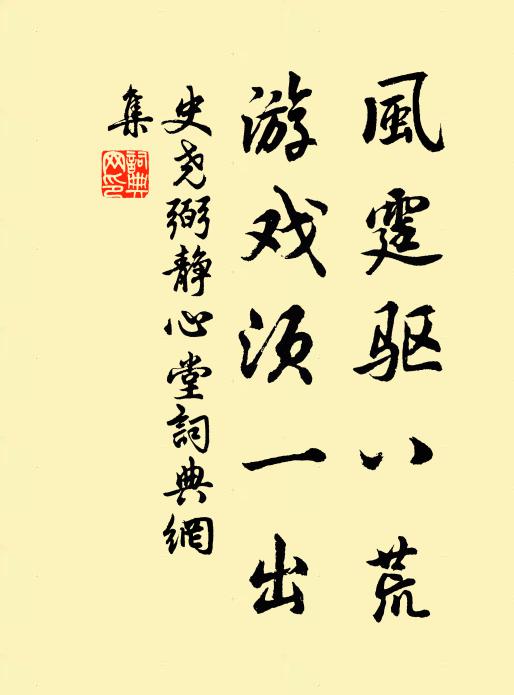 風霆驱八荒
游戏须一出
史尧弼静心堂詞典網
集
詞典网印